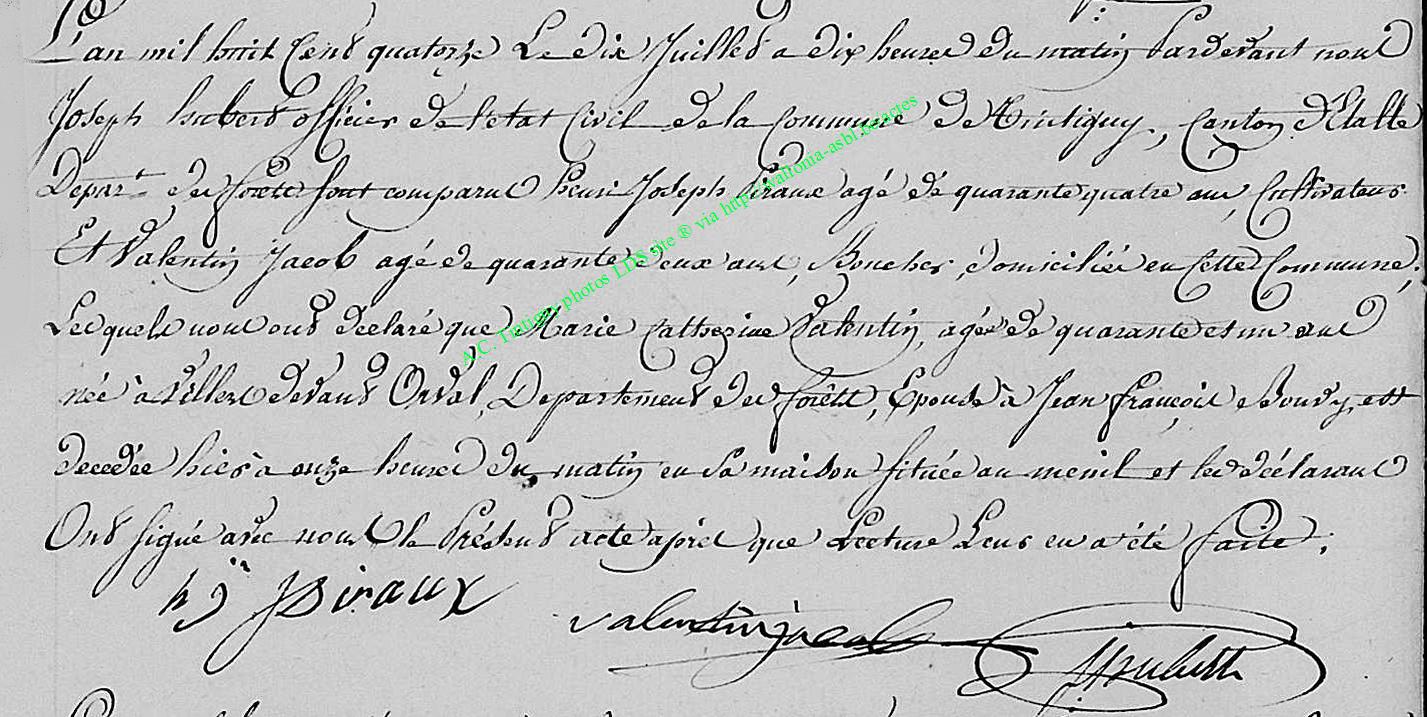 L'an mil huit Cent quatorze Le dix Juillet a dix heures du matin Pardevant nous
Joseph hubert officier de l'etat Civil de la Commune de tintigny, Canton d'Etalle
Depart.t des forêts sont comparus henri Joseph Piraux agé de quarante quatre ans, Cultivateur
Et Valentin Jacob agé de quarante deux ans, Boucher, domiciliés en Cette Commune,
Lesquels nous ont déclaré que Marie Catherine Valentin, agée de quarante et un ans
née à Villers devant Orval, Departement des forêts, Epouse à Jean françois Bouvy, est
decedée hier à onze heures du matin en sa maison située au menil et les déclarans
Ont signé avec nous le Présent acte après que Lecture Leur en a été faite.
h J Piraux
valentin jacob
J hubert
A.C. Tintigny photos LDS site ® via http://waltonia-asbl.be/actes